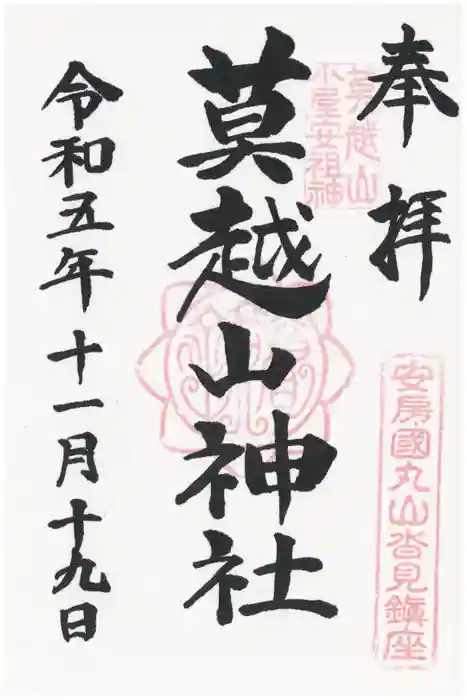 奉拝
安房國丸山沓見鎮座
莫越山
小屋安祖神
莫越山神社
令和五年十一月十九日